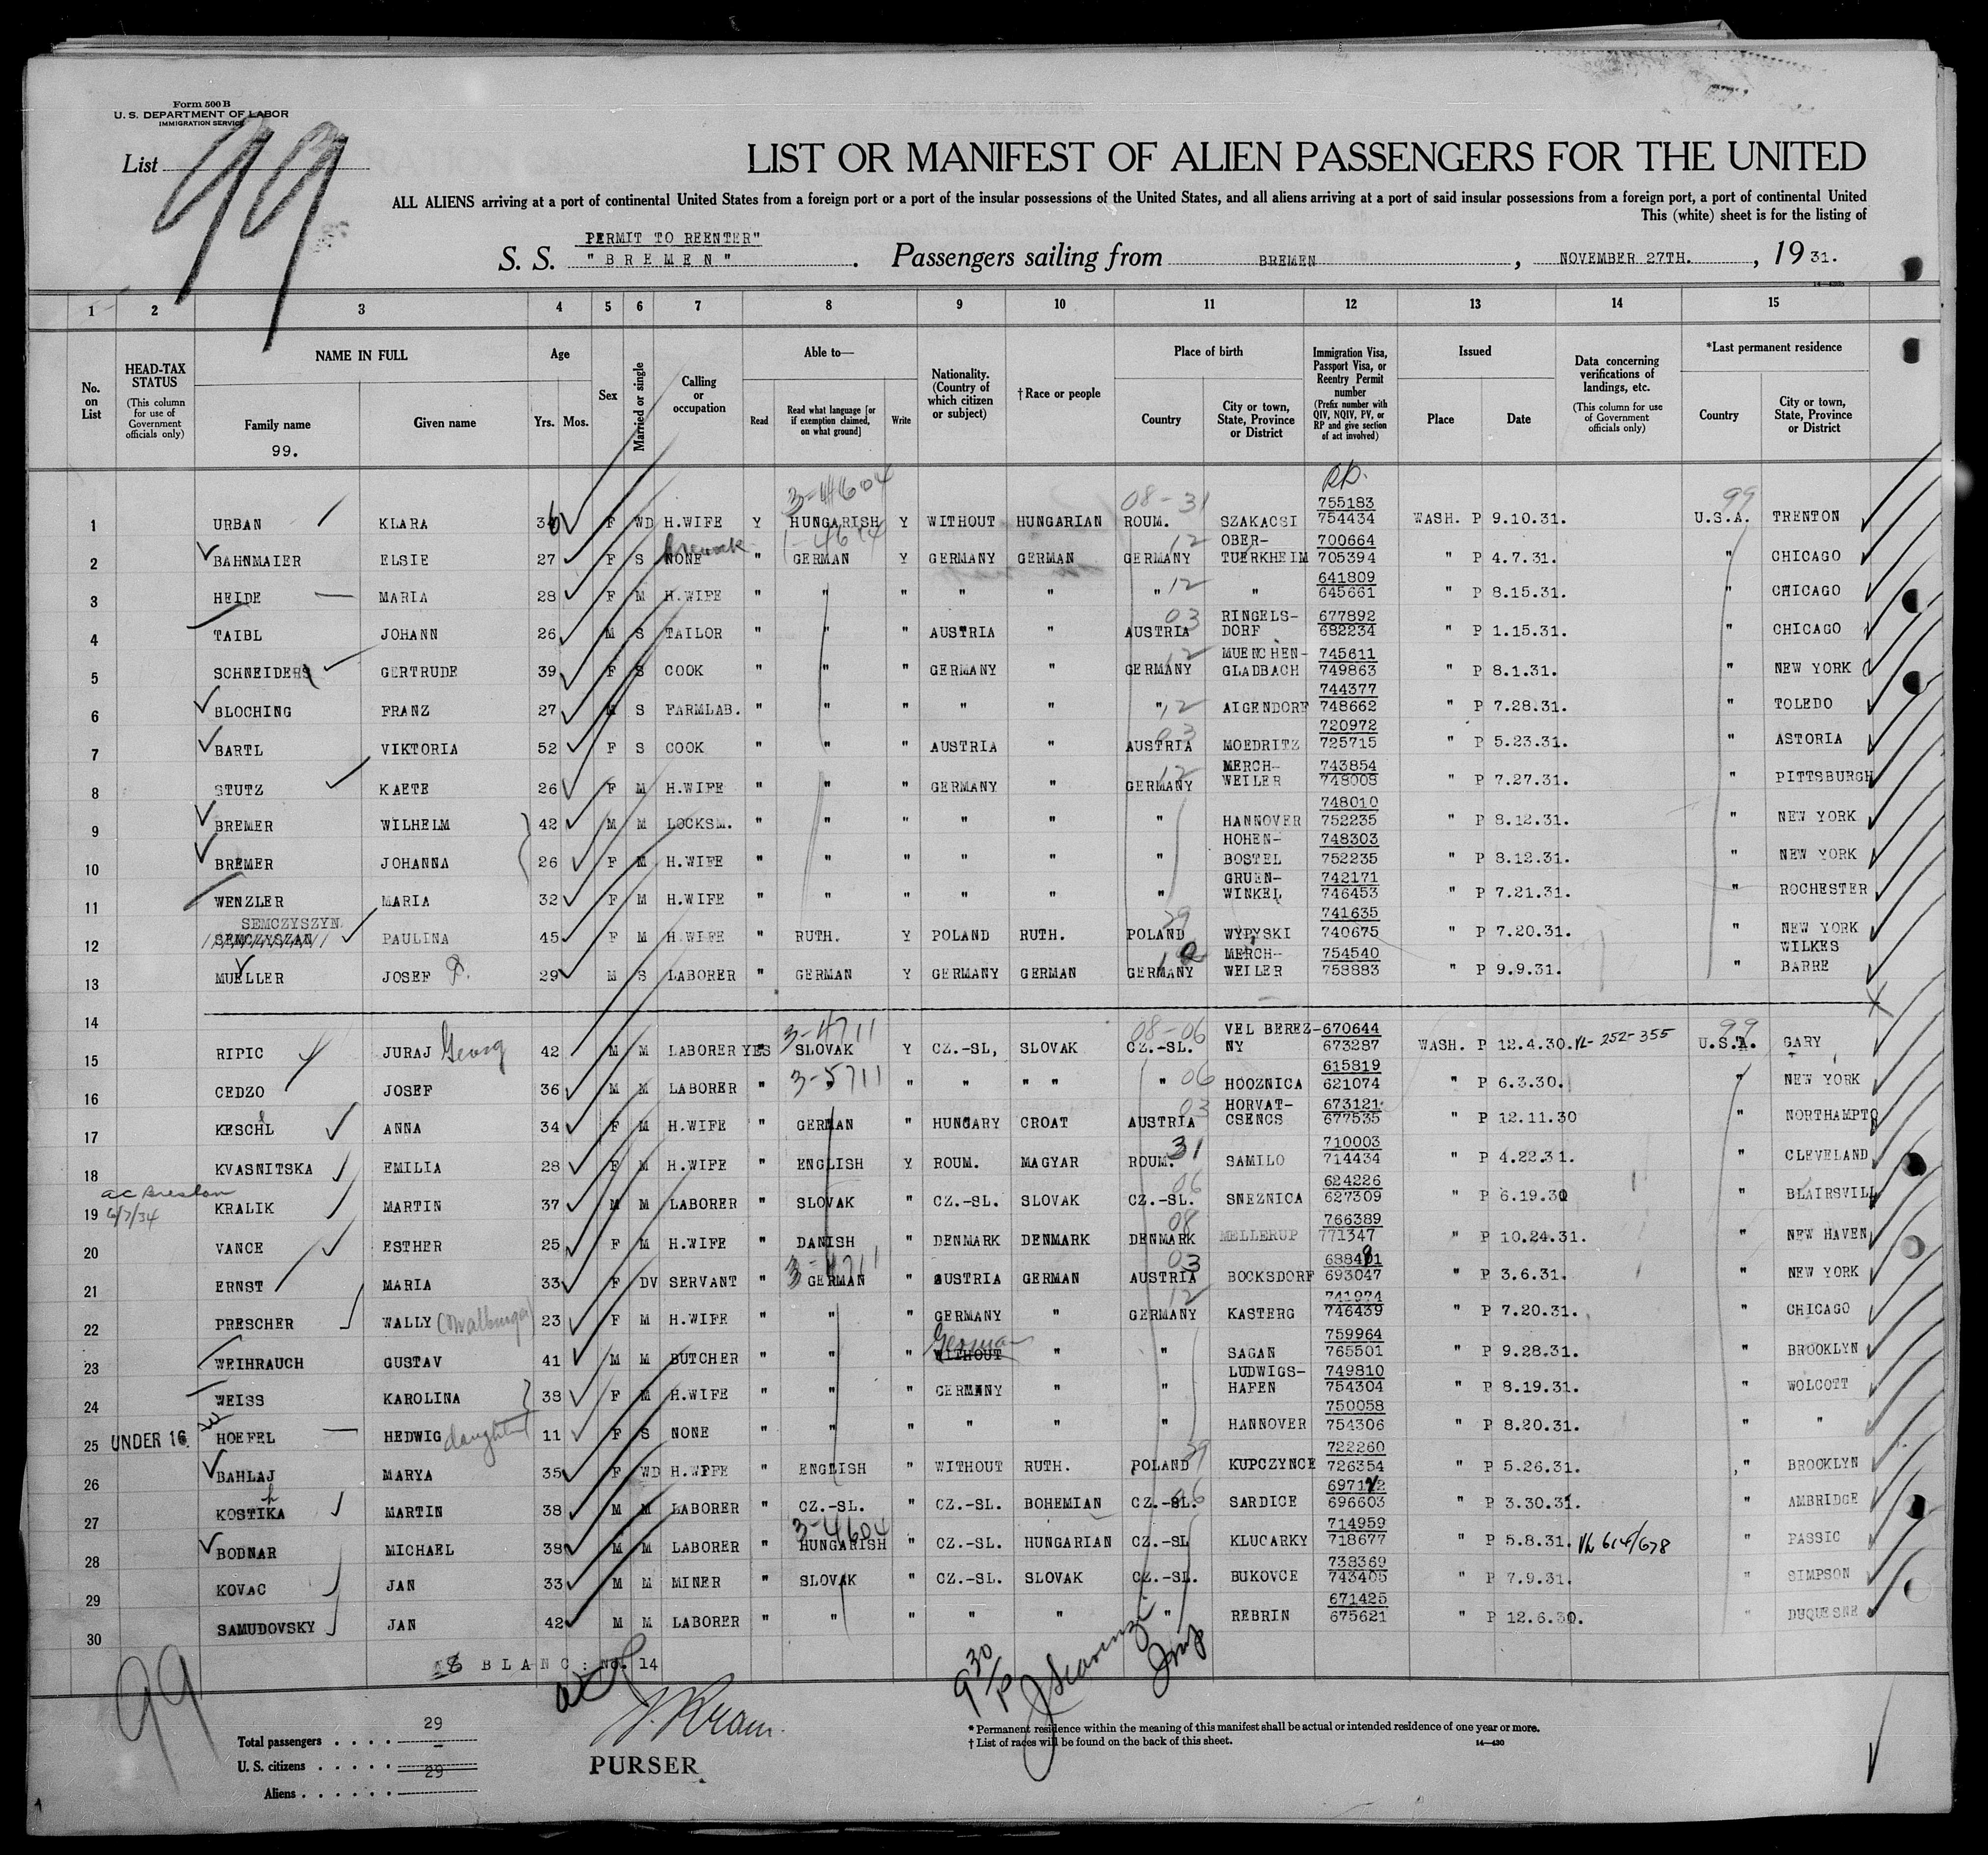 Form 500 B
U. S. DEPARTMENT OF LABOR
IMMIGRATION SERVICE
List 99
LIST OR MANIFEST OF ALIEN PASSENGERS FOR THE UNITED
ALL ALIENS arriving at a port of continental United States from a foreign port or a port of the insular possessions of the United States, and all aliens arriving at a port of said insular possessions from a foreign port, a port of continental United
This (white) sheet is for the listing of
PERMIT TO REENTER"
S. S. "BREMEN". Passengers sailing from BREMEN, NOVEMBER 27TH., 1931.
1 2 3 4 5 6 7 8 9 10 11 12 13 14 15
No. on List
HEAD-TAX STATUS (This column for use of Government officials only)
NAME IN FULL
Family name
99.
Given name
Age
Yrs. Mos.
Sex
Married or single
Calling or occupation
Able to—
Read
Read what language [or if exemption claimed, on what ground]
Write
Nationality. (Country of which citizen or subject)
† Race or people
Place of birth
Country
City or town, State, Province or District
Immigration Visa, Passport Visa, or Reentry Permit number (Prefix number with QIV, NQIV, PV, or RP and give section of act involved)
Issued
Place
Date
Data concerning verifications of landings, etc. (This column for use of Government officials only)
*Last permanent residence
Country
City or town, State, Province or District
3-4604 08-31 99
1 URBAN KLARA 36 F WD H.WIFE Y HUNGARISH Y WITHOUT HUNGARIAN ROUM. SZAKACSI 755183 754434 WASH. P 9.10.31. U.S.A. TRENTON
2 BAHNMAIER ELSIE 27 F S NONE " GERMAN Y GERMANY GERMAN GERMANY 12 OBER-TUERKHEIM 700664 705394 " P 4.7.31. " CHICAGO
3 HEIDE MARIA 28 F M H.WIFE " " " " " " 12 " 641809 645661 " P 8.15.31. " CHICAGO
4 TAIBL JOHANN 26 M S TAILOR " " " AUSTRIA " AUSTRIA 03 RINGELS-DORF 677892 682234 " P 1.15.31. " CHICAGO
5 SCHNEIDERS GERTRUDE 39 F S COOK " " " GERMANY " GERMANY 12 MUENCHEN-GLADBACH 745611 749863 " P 8.1.31. " NEW YORK
6 BLOCHING FRANZ 27 M S FARMLAB. " " " " " " 12 AIGENDORF 744377 748662 " P 7.28.31. " TOLEDO
7 BARTL VIKTORIA 52 F S COOK " " " AUSTRIA " AUSTRIA 03 MOEDRITZ 720972 725715 " P 5.23.31. " ASTORIA
8 STUTZ KAETE 26 F M H.WIFE " " " GERMANY " GERMANY 12 MERCH-WEILER 743854 748008 " P 7.27.31. " PITTSBURGH
9 BREMER WILHELM 42 M M LOCKSM. " " " " " " HANNOVER 748010 752235 " P 8.12.31. " NEW YORK
10 BREMER JOHANNA 26 F M H.WIFE " " " " " " HOHEN-BOSTEL 748303 752235 " P 8.12.31. " NEW YORK
11 WENZLER MARIA 32 F M H.WIFE " " " " " " GRUEN-WINKEL 742171 746453 " P 7.21.31. " ROCHESTER
SEMCZYSZYN
12 SEMCZYSZAN PAULINA 45 F M H.WIFE " RUTH. Y POLAND RUTH. POLAND WYPYSKI 741635 740675 " P 7.20.31. " NEW YORK
13 MUELLER JOSEF 29 M S LABORER " GERMAN Y GERMANY GERMAN GERMANY MERCH-WEILER 754540 758883 " P 9.9.31. " WILKES BARRE
14
3-4711 08-06 99
15 RIPIC JURAJ Georg 42 M M LABORER YES SLOVAK Y CZ.-SL, SLOVAK CZ.-SL. VEL BEREZ-NY 670644 673287 WASH. P 12.4.30. VL-252-355 U.S.A. GARY
16 CEDZO JOSEF 36 M M LABORER " 3-5711 " " " " " 06 HOOZNICA 615819 621074 " P 6.3.30. " NEW YORK
17 KESCHL ANNA 34 F M H.WIFE " GERMAN " HUNGARY CROAT AUSTRIA 03 HORVAT-CSENCS 673121 677535 " P 12.11.30 " NORTHAMPTO
18 KVASNITSKA EMILIA 28 F M H.WIFE " ENGLISH Y ROUM. MAGYAR ROUM. 31 SAMILO 710003 714434 " P 4.22.31. " CLEVELAND
6/7/34
19 KRALIK MARTIN 37 M M LABORER " SLOVAK " CZ.-SL. SLOVAK CZ.-SL. 06 SNEZNICA 624226 627309 " P 6.19.30 " BLAIRSVILL
20 VANCE ESTHER 25 F M H.WIFE " DANISH " DENMARK DENMARK DENMARK 08 MELLERUP 766389 771347 " P 10.24.31. " NEW HAVEN
3-4711
21 ERNST MARIA 33 F DV SERVANT " GERMAN " AUSTRIA GERMAN AUSTRIA 03 BOCKSDORF 693047 " P 3.6.31. " NEW YORK
22 PRESCHER WALLY (Walburga) 23 F M H.WIFE " " " GERMANY " GERMANY 12 KASTERG 741974 746439 " P 7.20.31. " CHICAGO
23 WEIHRAUCH GUSTAV 41 M M BUTCHER " " " WITHOUT German " " SAGAN 759964 765501 " P 9.28.31. " BROOKLYN
24 WEISS KAROLINA 38 F M H.WIFE " " " GERMANY " " LUDWIGS-HAFEN 749810 754304 " P 8.19.31. " WOLCOTT
25 UNDER 16 HOEFEL HEDWIG daughter 11 F S NONE " " " " " " HANNOVER 750058 754306 " P 8.20.31. " "
26 BAHLAJ MARYA 35 F WD H.WIFE " ENGLISH " WITHOUT RUTH. POLAND KUPCZYNCE 722260 726354 " P 5.26.31. " BROOKLYN
27 KOSTIKA MARTIN 38 M M LABORER " CZ.-SL. " CZ.-SL. BOHEMIAN CZ.-SL. 06 SARDICE 696603 " P 3.30.31. " AMBRIDGE
3-4604
28 BODNAR MICHAEL 38 M M LABORER " HUNGARISH " CZ.-SL. HUNGARIAN CZ.-SL KLUCARKY 714959 718677 " P 5.8.31. VL 614/678 " PASSIC
29 KOVAC JAN 33 M M MINER " SLOVAK " CZ.-SL. SLOVAK CZ.-SL. BUKOVCE 738369 743405 " P 7.9.31. " SIMPSON
30 SAMUDOVSKY JAN 42 M M LABORER " " " " " " REBRIN 671425 675621 " P 12.6.30. " DUQUESNE
BLANC: No. 14
99
Total passengers . . . . 29
U. S. citizens . . . . . –
Aliens . . . . . . 29
PURSER
930/P
* Permanent residence within the meaning of this manifest shall be actual or intended residence of one year or more.
† List of races will be found on the back of this sheet.
14—430